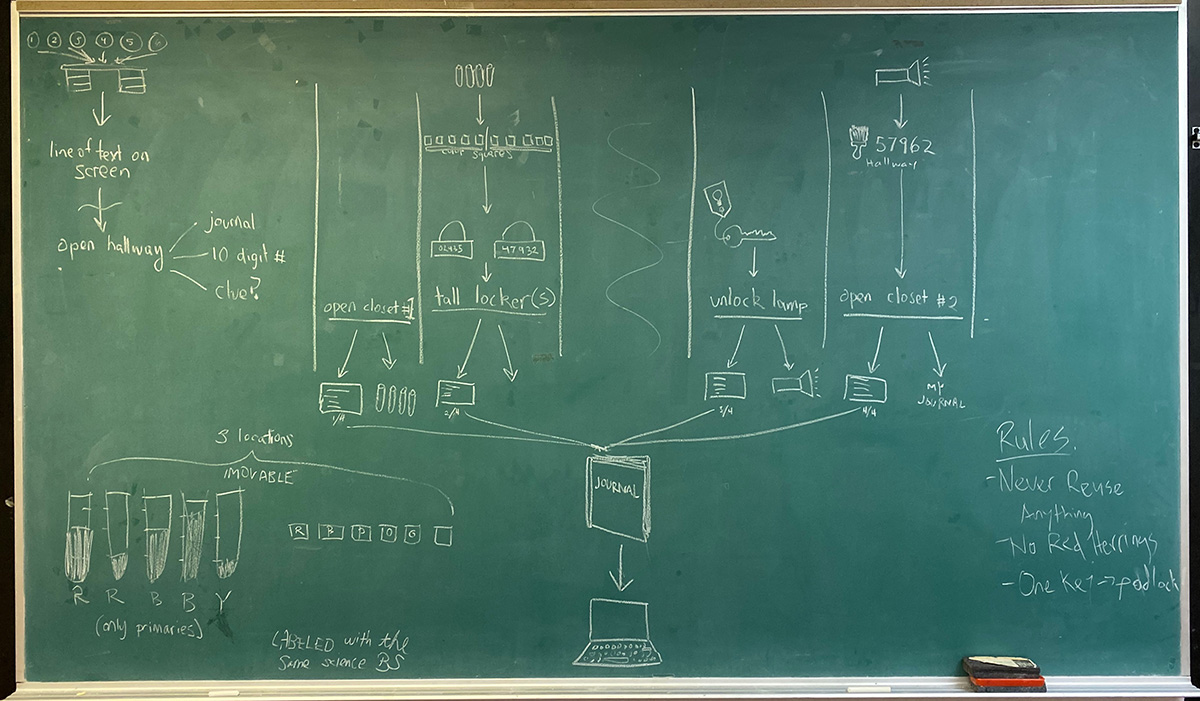 1 2 3 4 5 6
line of text on
screen
open hallway
journal
10 digit #
clue?
open closet #1
1/4
tall locker(s)
2/4
unlock lamp
3/4
57962
Hallway
open closet #2
4/4
MY
JOURNAL
JOURNAL
3 locations
MOVABLE
R R B B Y
(only primaries)
R B P O G
LABELED with the
same science BS
Rules.
- Never Reuse
Anything
- No Red Herrings
- One Key -> padlock